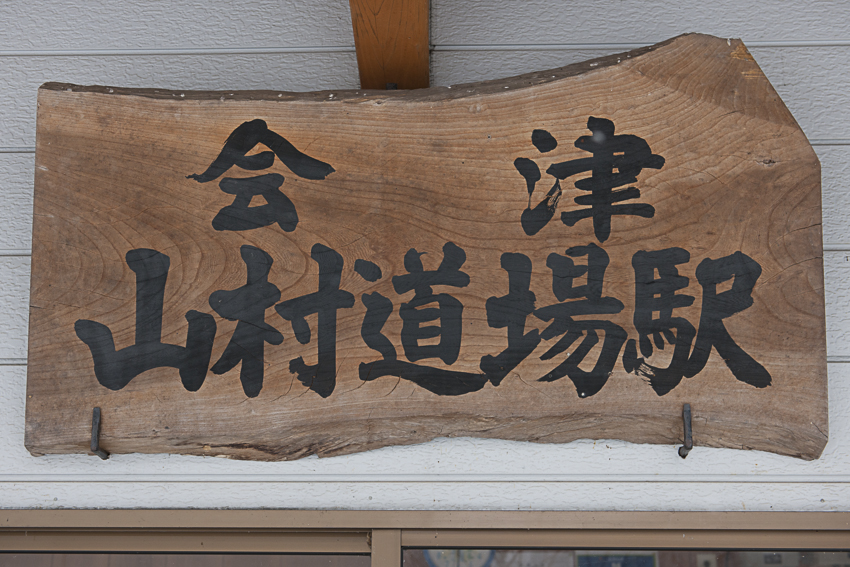 会津
山村道場駅